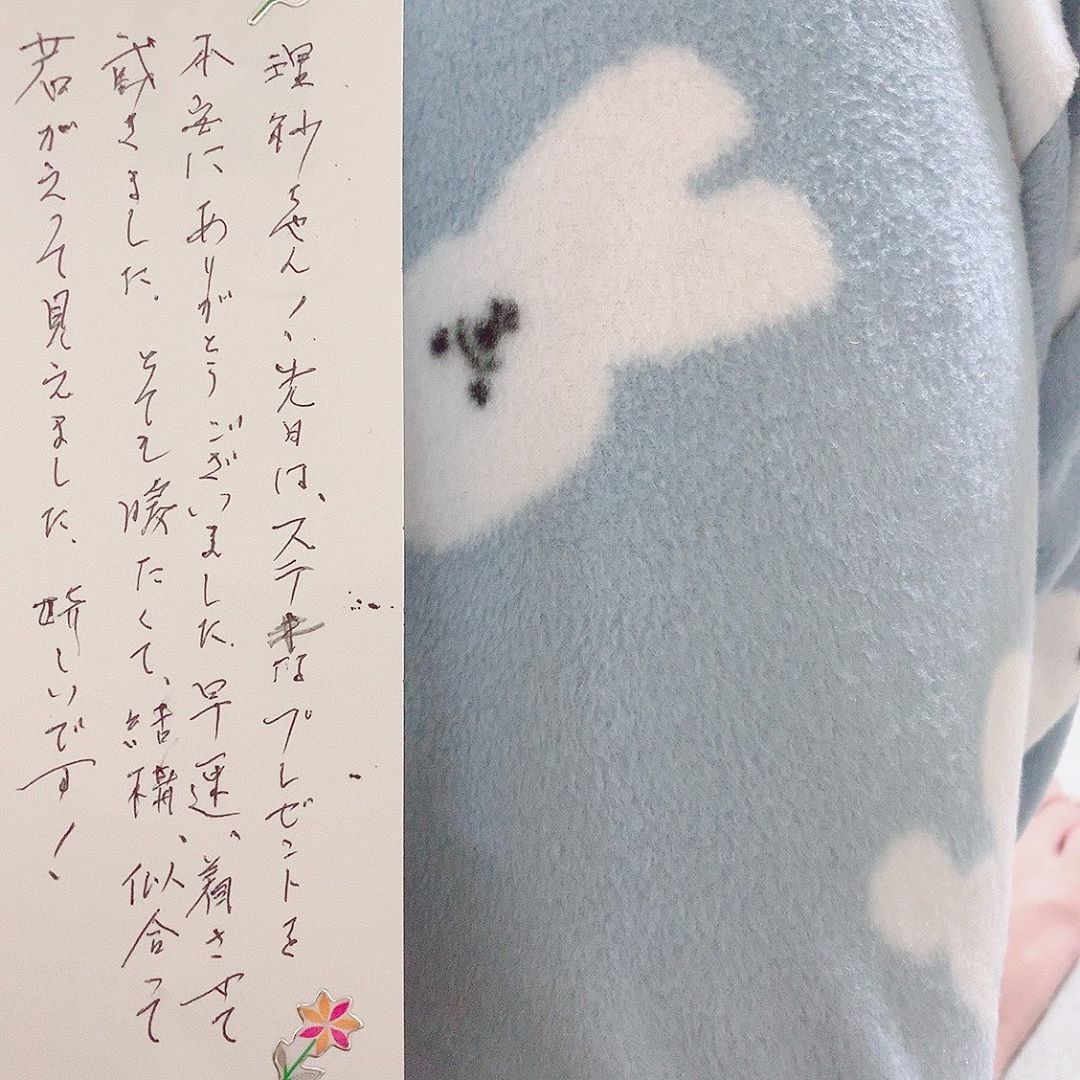 理紗ちゃん!、先日は、ステキなプレゼントを
本当にありがとうございました。早速、着させて
戴きました。とても暖たくて、結構、似合って
若がえって見えました。嬉しいです!